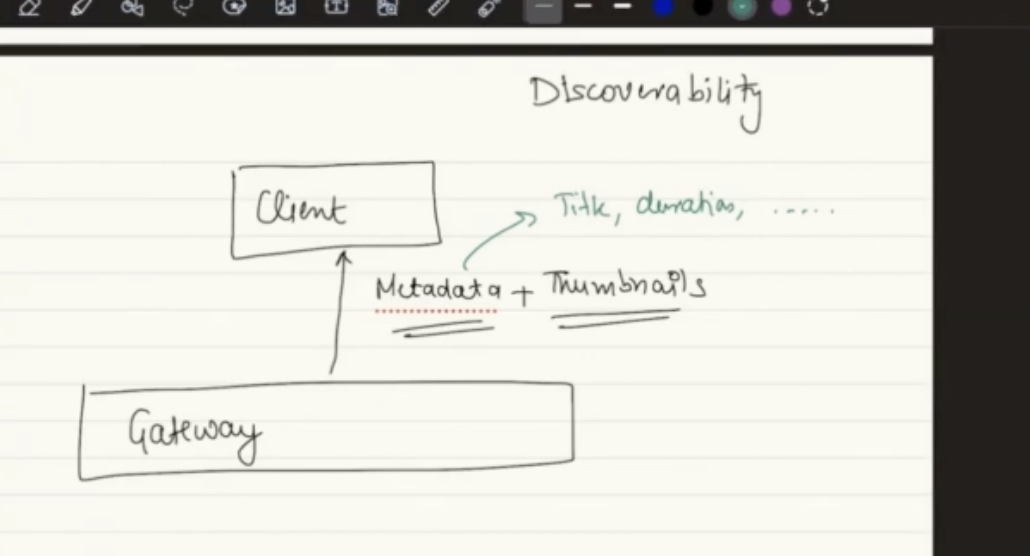 Discoverability
Client
Title, duration, .....
Metadata + Thumbnails
Gateway